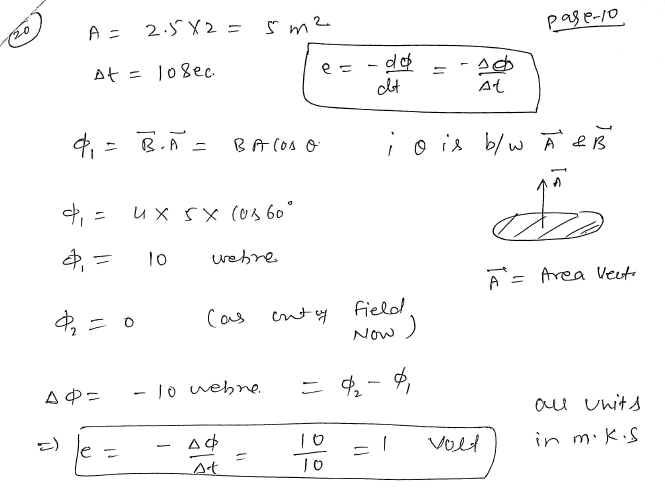 page-10
20
A = 2.5 X 2 = 5 m²
Δt = 10 sec.
e = - dϕ/dt = - Δϕ/Δt
ϕ₁ = B̅.A̅ = BA cos θ ; θ is b/w A̅ & B̅
A̅
ϕ₁ = 4 x 5 x cos 60°
ϕ₁ = 10 webre
A̅ = Area Vect.
ϕ₂ = 0 (as out of field Now)
Δϕ = - 10 webre. = ϕ₂ - ϕ₁
all units
in m.K.S
=) e = - Δϕ/Δt = 10/10 = 1 Volt